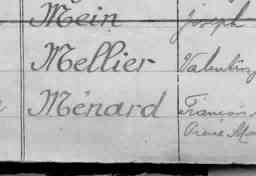 Mein Joseph
Mellier Valentin
Ménard François